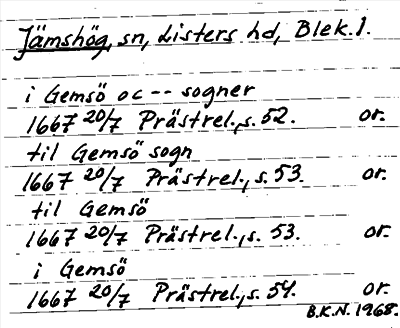 Jämshög, sn, Listers hd, Blek. l.
i Gemsö oc -- sogner
1667 20/7 Prästrel., s. 52. or.
til Gemsö sogn
1667 20/7 Prästrel., s. 53. or.
til Gemsö
1667 20/7 Prästrel., s. 53. or.
i Gemsö
1667 20/7 Prästrel., s. 54. or.
B.K.N. 1968.